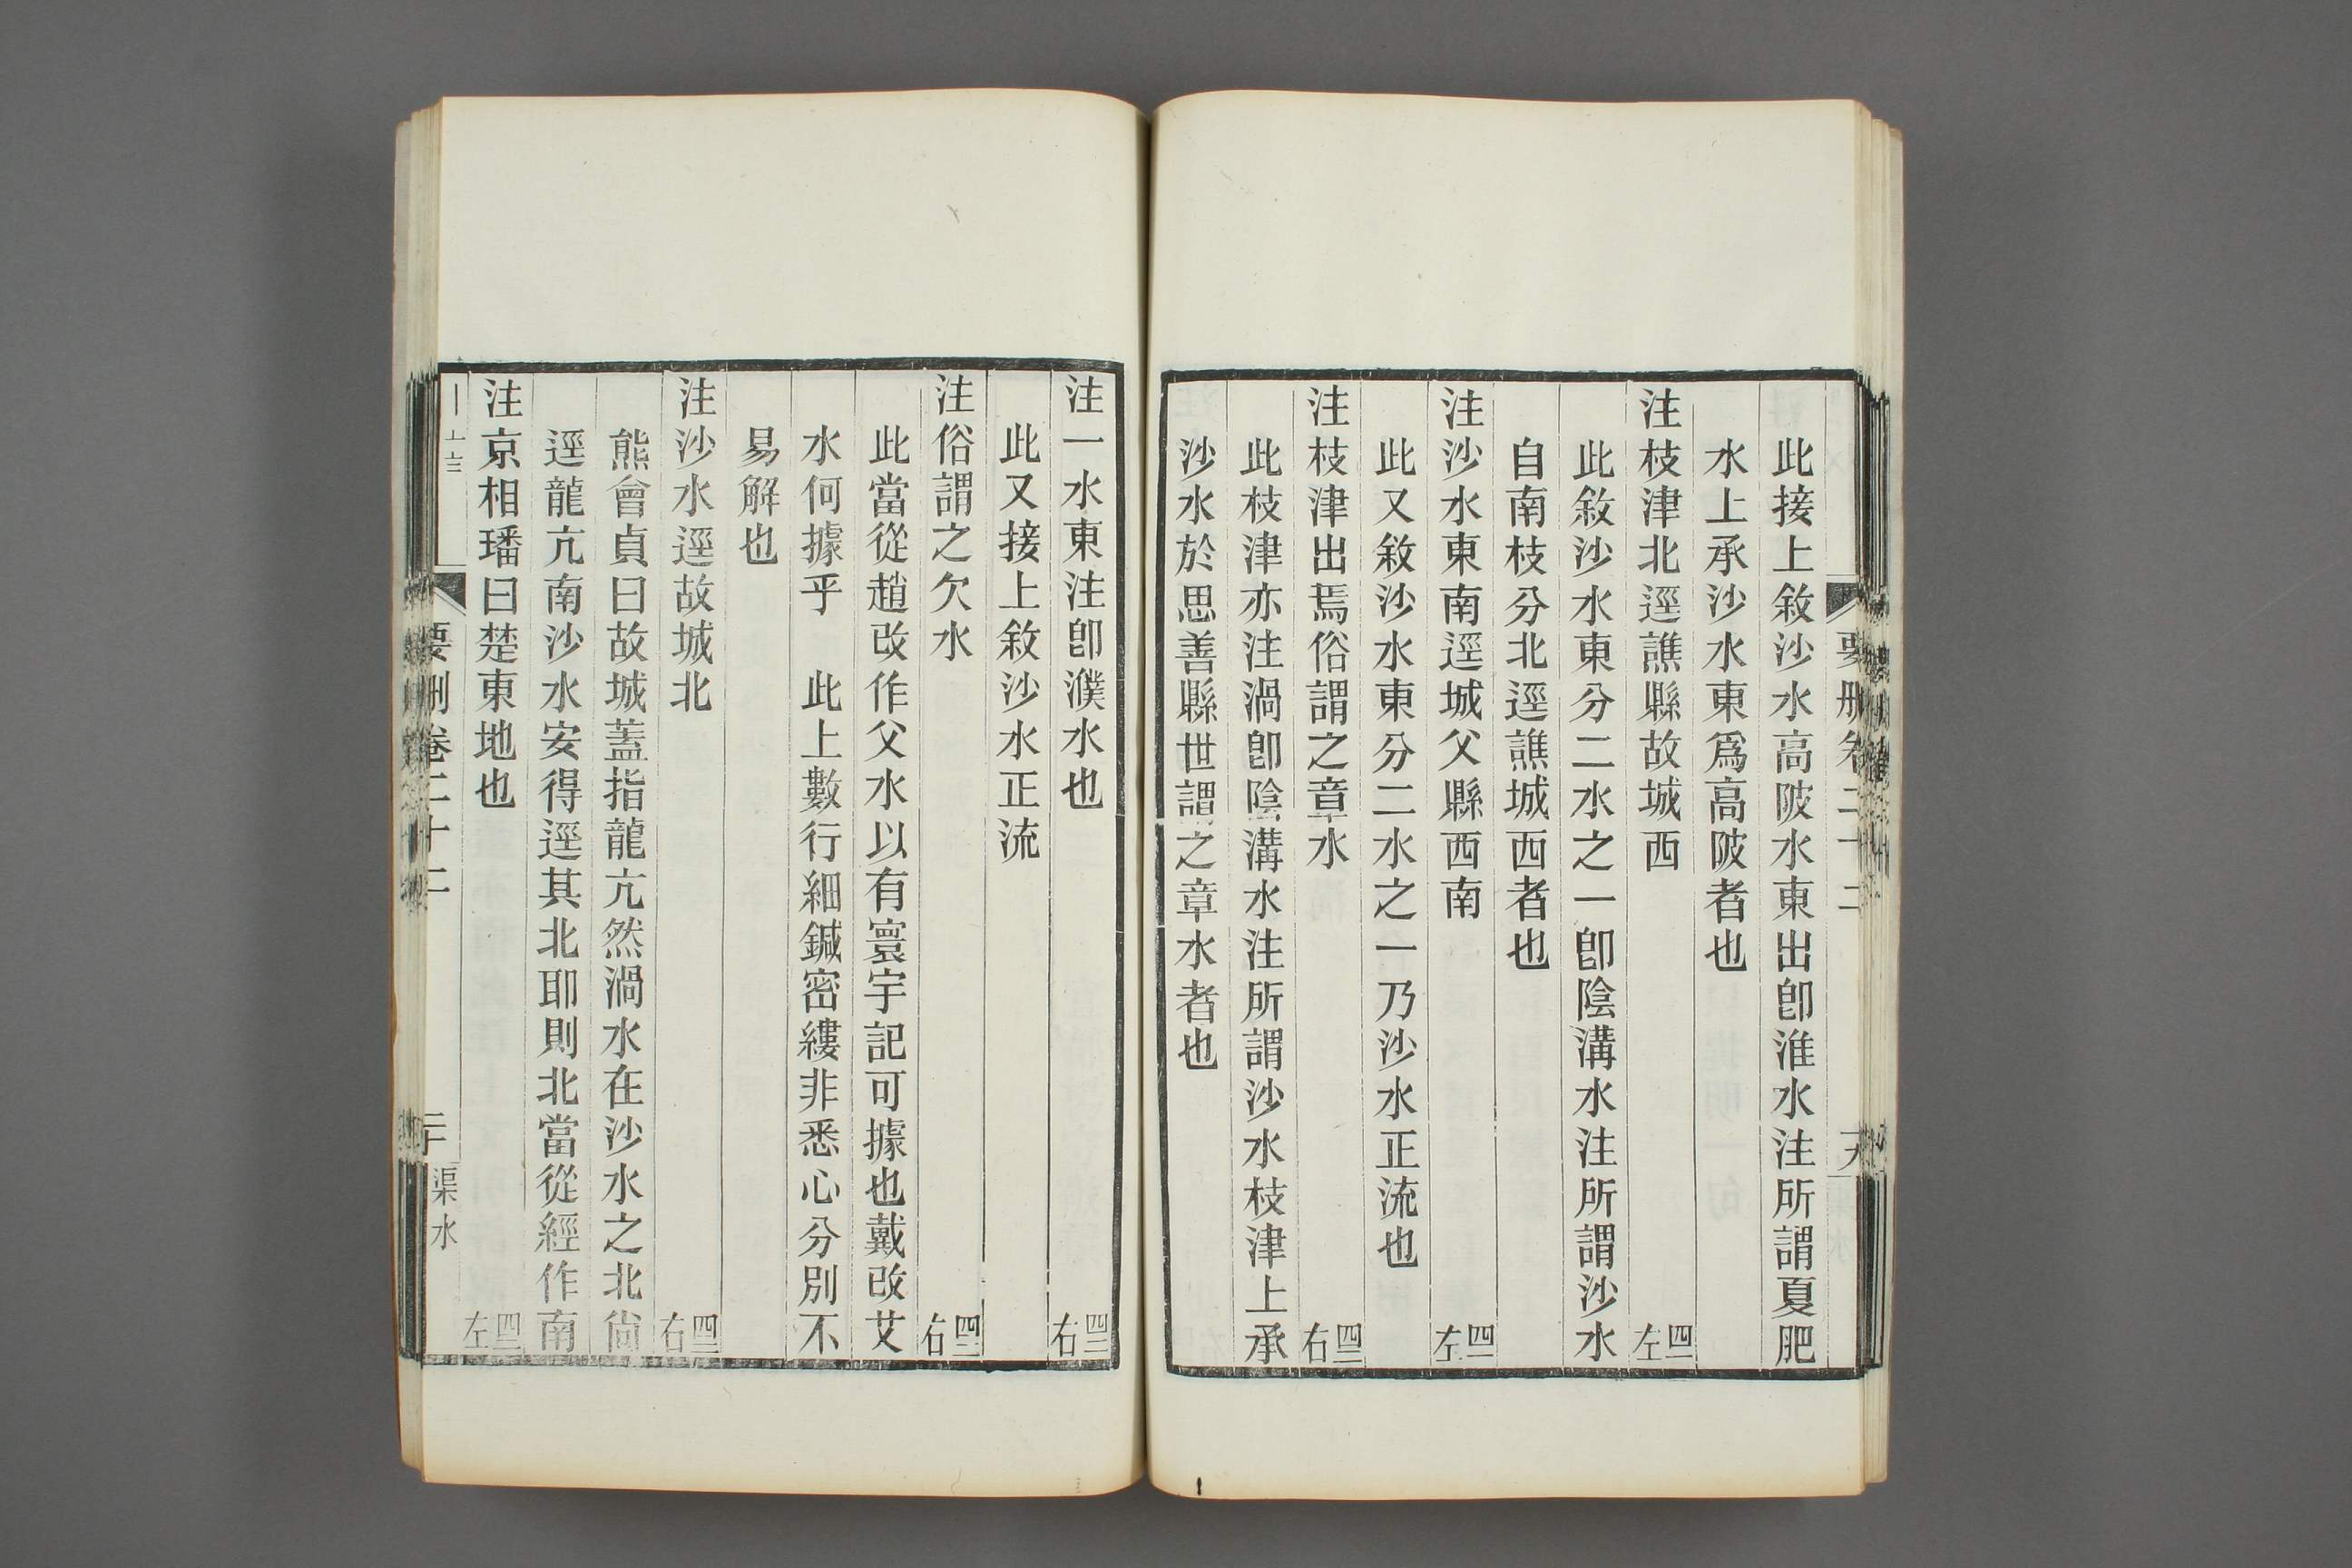 要刪卷二十二
此接上敘沙水高陂水東出卽淮水注所謂夏肥
水上承沙水東爲高陂者也
注枝津北逕譙縣故城西 四二左
此敘沙水東分二水之一卽陰溝水注所謂沙水
自南枝分北逕譙城西者也
注沙水東南逕城父縣西南 四二左
此又敘沙水東分二水之一乃沙水正流也
注枝津出焉俗謂之章水 四三右
此枝津亦注渦卽陰溝水注所謂沙水枝津上承
沙水於思善縣世謂之章水者也
注一水東注卽濮水也 四三右
此又接上敘沙水正流
注俗謂之欠水 四三右
此當從趙改作父水以有寰宇記可據也戴改艾
水何據乎　此上數行細鍼密縷非悉心分別不
易解也
注沙水逕故城北 四三右
熊會貞曰故城蓋指龍亢然渦水在沙水之北尙
逕龍亢南沙水安得逕其北耶則北當從經作南
注京相璠曰楚東地也 四三左
要刪卷二十二
渠水